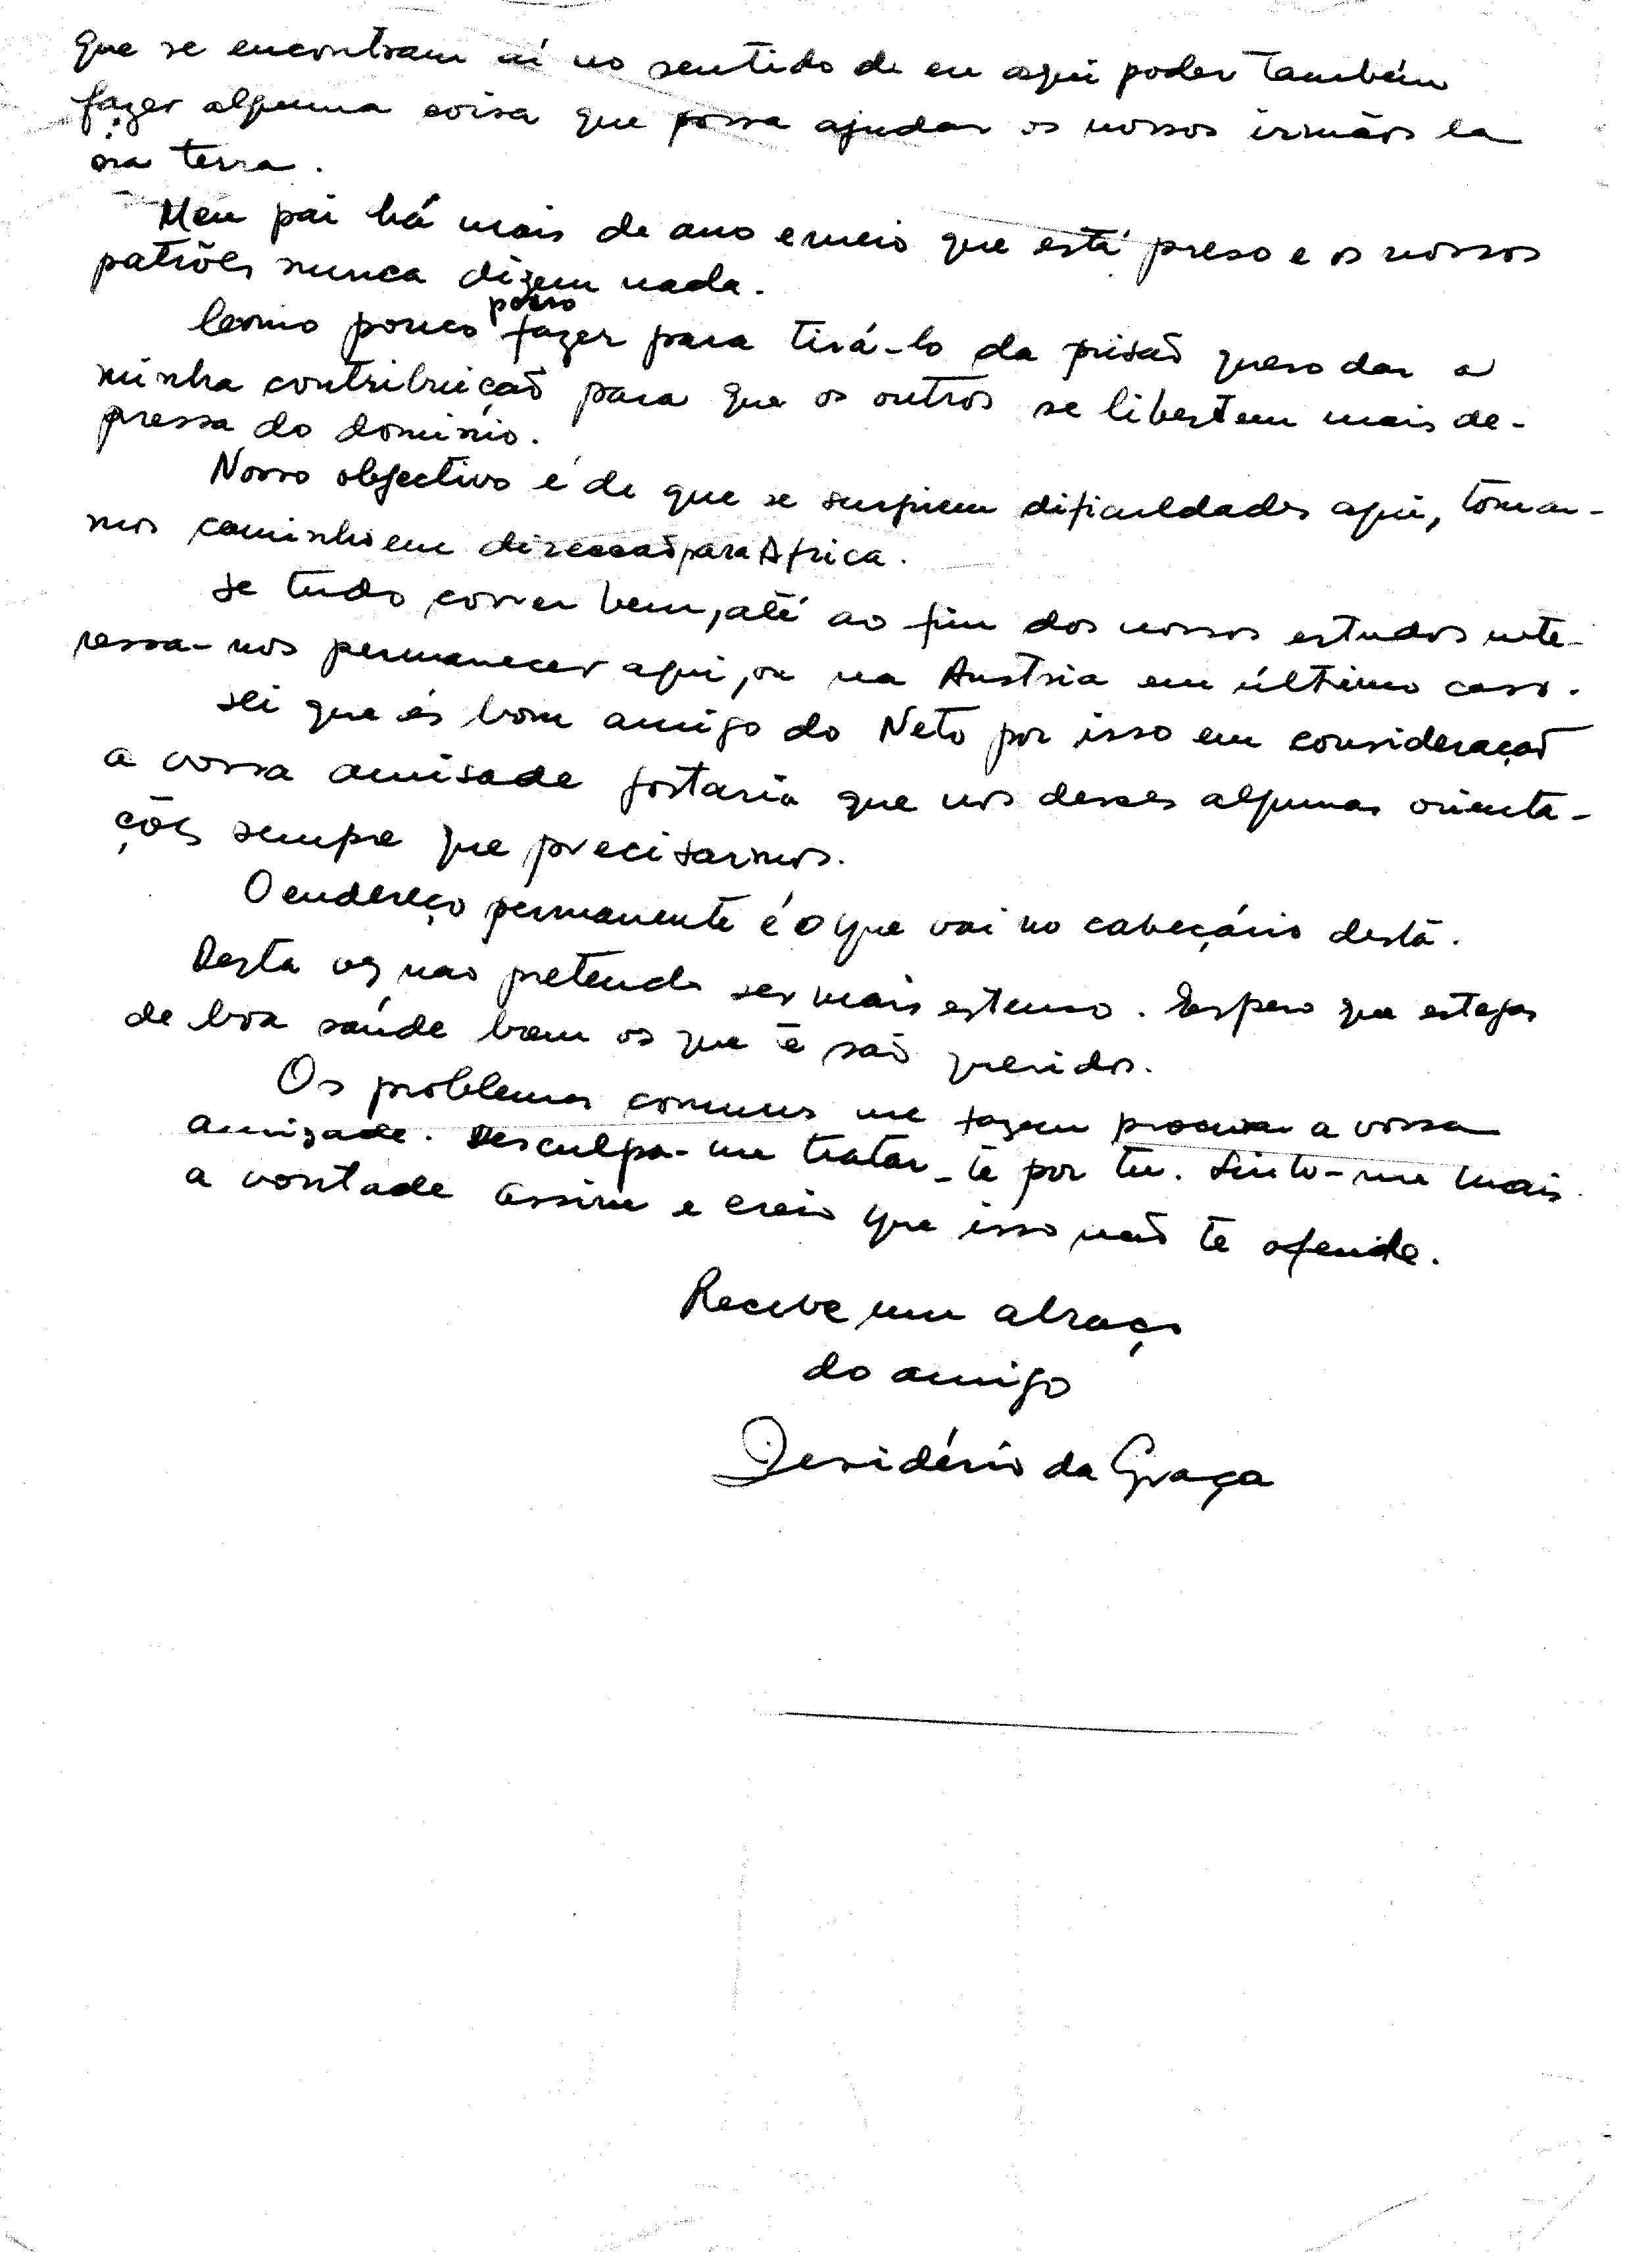 que se encontram aí no sentido de eu aqui poder também
fazer alguma coisa que possa ajudar os nossos irmãos la
na terra.
Meu pai há mais de ano e meio que está preso e os nossos
patrões nunca dizem nada.
posso
Como pouco fazer para tirá-lo da prisão quero dar a
minha contribuição para que os outros se libertem mais de-
pressa do dominio.
Nosso objectivo é de que se surgirem dificuldades aqui, tomar-
mos caminho em direcção para Africa.
Se tudo correr bem, até ao fim dos nossos estudos inte-
ressa-nos permanecer aqui, ou na Austria em último caso.
Sei que és bom amigo do Neto por isso em consideração
a vossa amisade gostaria que nos desses algumas orienta-
ções sempre que precisarmos.
O endereço permanente é o que vai no cabeçário desta.
Desta vez nao pretendo ser mais estenso. Espero que estejas
de boa saúde bem os que te são queridos.
Os problemas comuns me fazem procurar a vossa
amizade. Desculpa-me tratar-te por tu. Sinto-me mais
a vontade assim e creio que isso não te ofende.
Recebe um abraço
do amigo
Desidério da Graça